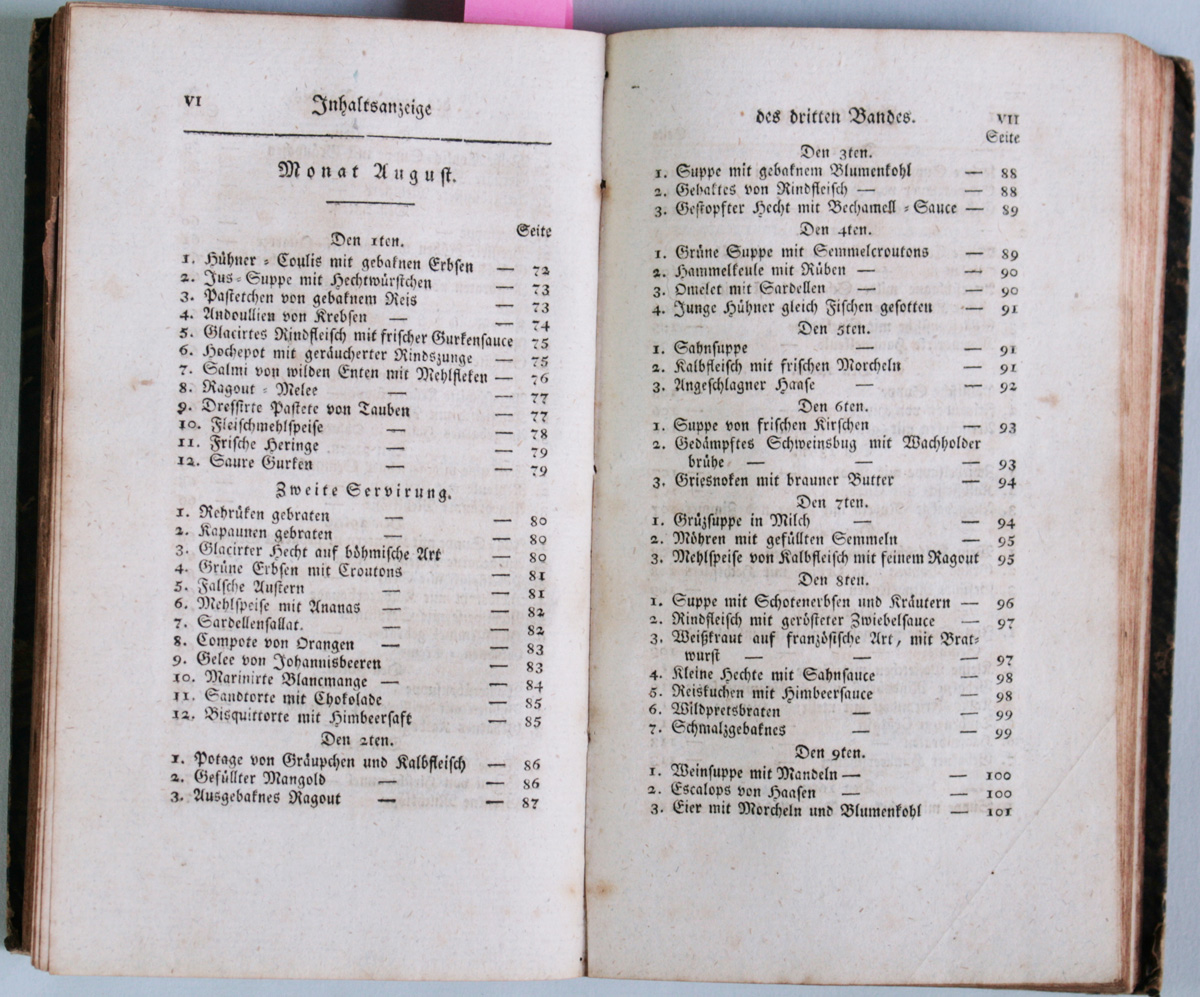 VI Inhaltsanzeige
Monat August.
Seite
Den 1ten.
1. Hühner-Coulis mit gebaknen Erbsen — 72
2. Jus-Suppe mit Hechtwürstchen — 73
3. Pastetchen von gebaknem Reis — 73
4. Andoullien von Krebsen — — 74
5. Glacirtes Rindfleisch mit frischer Gurkensauce 75
6. Hochepot mit geräucherter Rindszunge — 75
7. Salmi von wilden Enten mit Mehlfleken — 76
8. Ragout-Melee — — 77
9. Dressirte Pastete von Tauben — 77
10. Fleischmehlspeise — — 78
11. Frische Heringe — — 79
12. Saure Gurken — — 79
Zweite Servirung.
1. Rehrüken gebraten — — 80
2. Kapaunen gebraten — — 80
3. Glacirter Hecht auf böhmische Art — 80
4. Grüne Erbsen mit Croutons — 81
5. Falsche Austern — — 81
6. Mehlspeise mit Ananas — — 82
7. Sardellensallat. — — 82
8. Compote von Orangen — — 83
9. Gelee von Johannisbeeren — 83
10. Marinirte Blancmange — — 84
11. Sandtorte mit Chokolade — 85
12. Bisquittorte mit Himbeersaft — 85
Den 2ten.
1. Potage von Gräupchen und Kalbfleisch — 86
2. Gefüllter Mangold — — 86
3. Ausgebaknes Ragout — — 87
des dritten Bandes. VII
Seite
Den 3ten.
1. Suppe mit gebaknem Blumenkohl — 88
2. Gehaktes von Rindfleisch — — 88
3. Gestopfter Hecht mit Bechamell-Sauce — 89
Den 4ten.
1. Grüne Suppe mit Semmelcroutons — 89
2. Hammelkeule mit Rüben — — 90
3. Omelet mit Sardellen — — 90
4. Junge Hühner gleich Fischen gesotten — 91
Den 5ten.
1. Sahnsuppe — — 91
2. Kalbfleisch mit frischen Morcheln — 91
3. Angeschlagner Haase — — 92
Den 6ten.
1. Suppe von frischen Kirschen — 93
2. Gedämpftes Schweinsbug mit Wachholder
brühe — — — 93
3. Griesnoken mit brauner Butter — 94
Den 7ten.
1. Grüzsuppe in Milch — — 94
2. Möhren mit gefüllten Semmeln — 95
3. Mehlspeise von Kalbfleisch mit feinem Ragout 95
Den 8ten.
1. Suppe mit Schotenerbsen und Kräutern — 96
2. Rindfleisch mit gerösteter Zwiebelsauce — 97
3. Weißkraut auf französische Art, mit Brat-
wurst — — — 97
4. Kleine Hechte mit Sahnsauce — 98
5. Reiskuchen mit Himbeersauce — 98
6. Wildpretsbraten — — 99
7. Schmalzgebaknes — — 99
Den 9ten.
1. Weinsuppe mit Mandeln — — 100
2. Escalops von Haasen — — 100
3. Eier mit Morcheln und Blumenkohl — 101